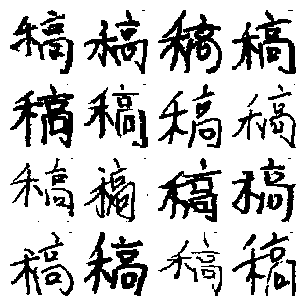 稿稿稿稿
稿稿稿稿
稿稿稿稿
稿稿稿稿